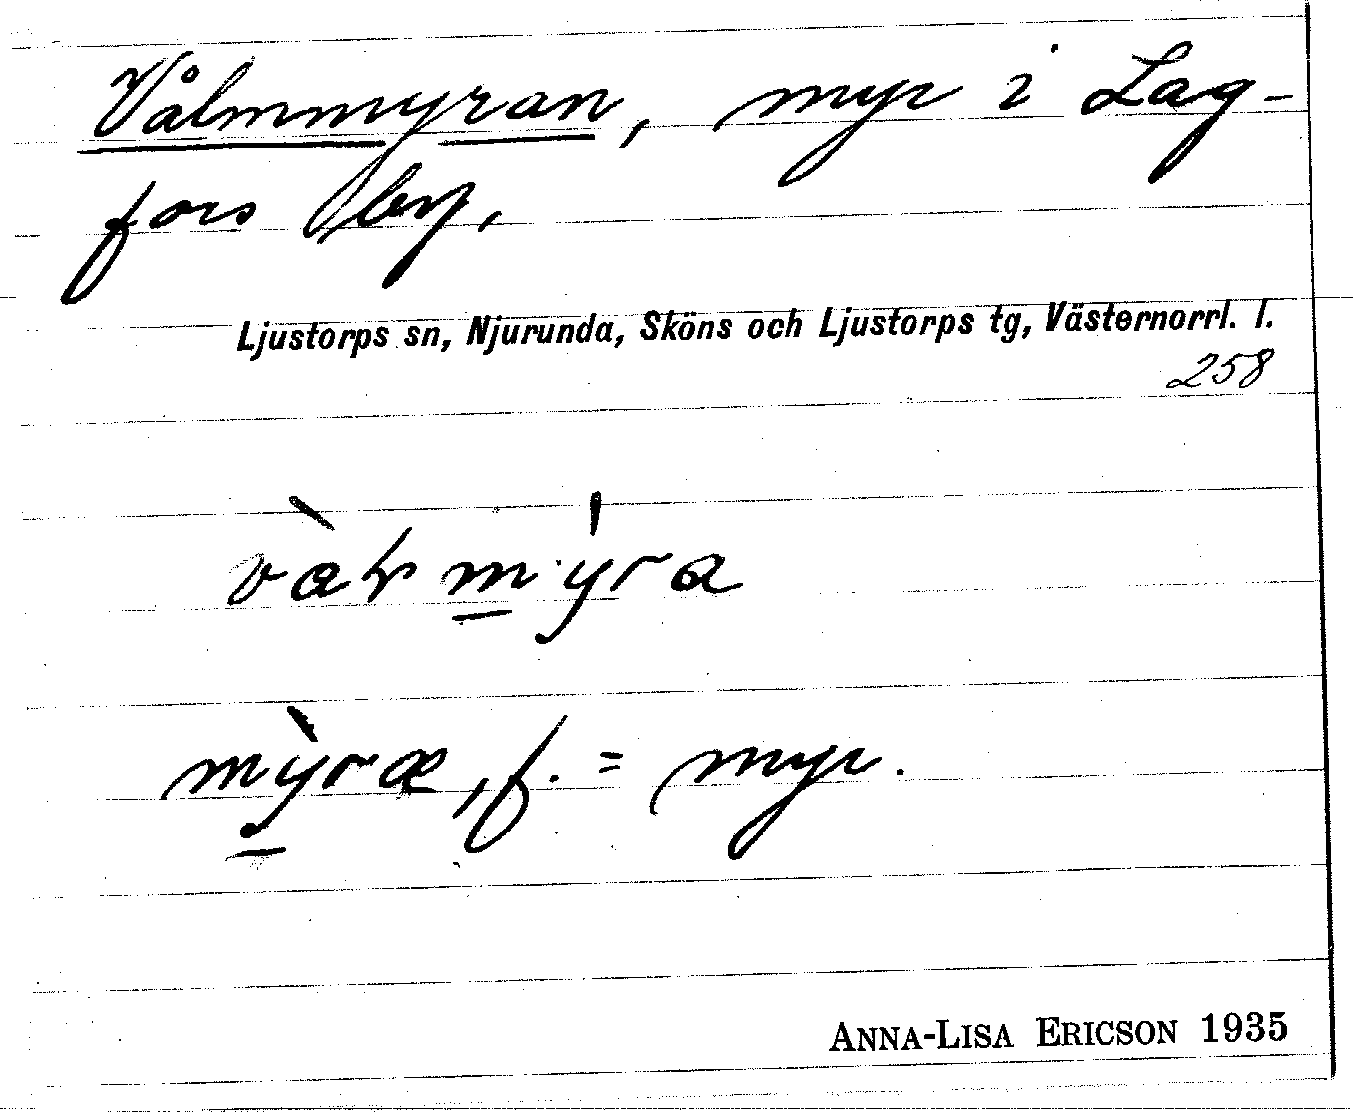 Vålmmyran, myr i Lag-
fors by.
Ljustorps sn, Njurunda, Sköns och Ljustorps tg, Västernorrl. l.
258
mỳræ, f. = myr.
ANNA-LISA ERICSON 1935